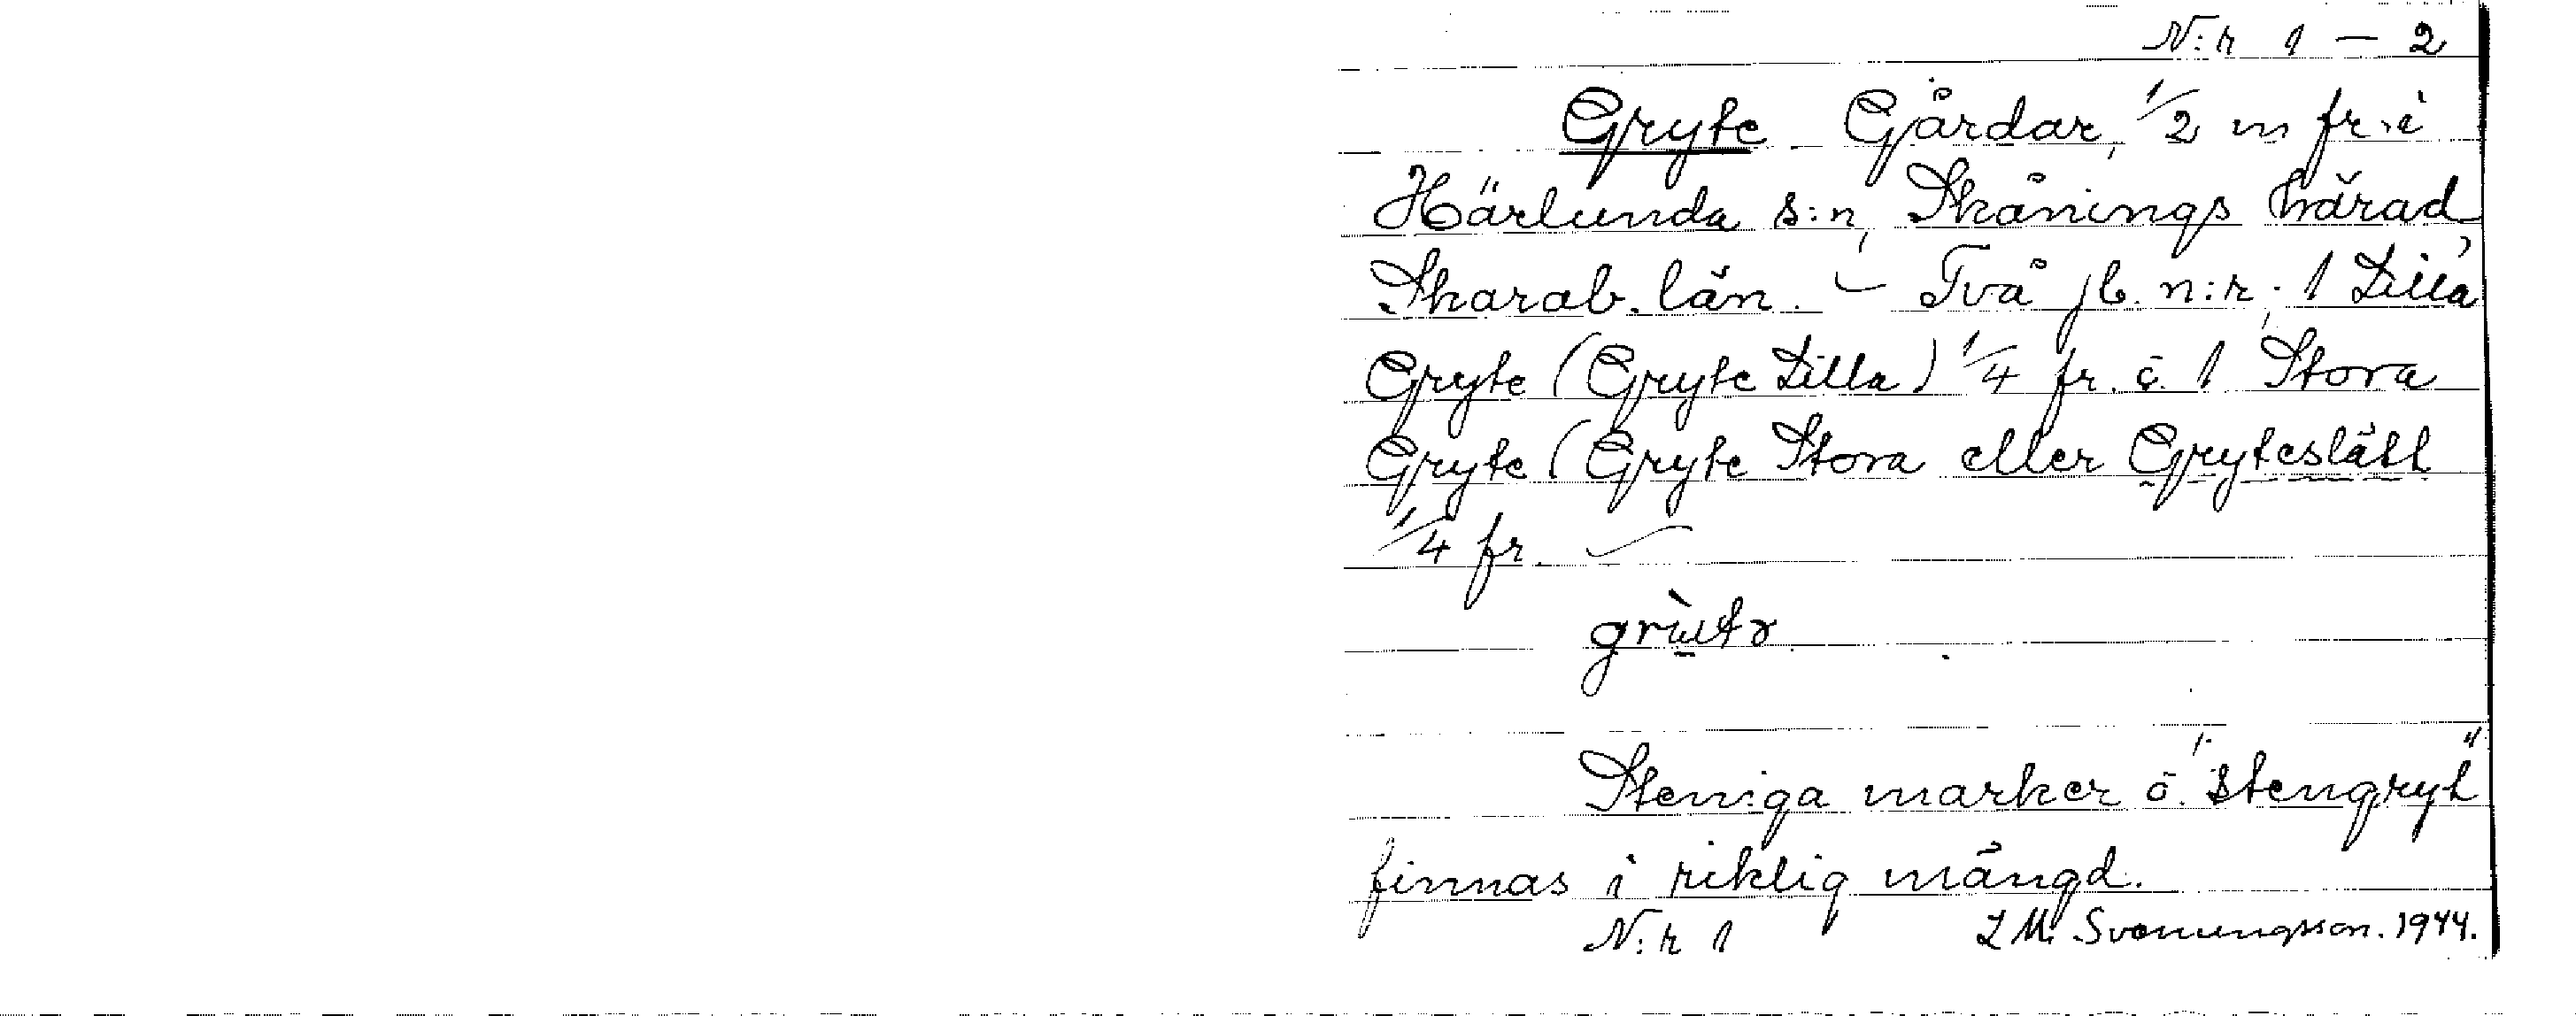 N:r 1 – 2
Gryte Gårdar, 1/2 m fr. i
Härlunda s:n, Skånings härad,
Skarab. län. – Två jb. n:r; 1 Lilla
Gryte (Gryte Lilla) 1/4 fr. o. 1 Stora
Gryte (Gryte Stora eller Gryteslätt
1/4 fr.
Steniga marker o. "stengryt"
finnas i riklig mängd.
N:r 1 L M. Svenungsson. 1944.